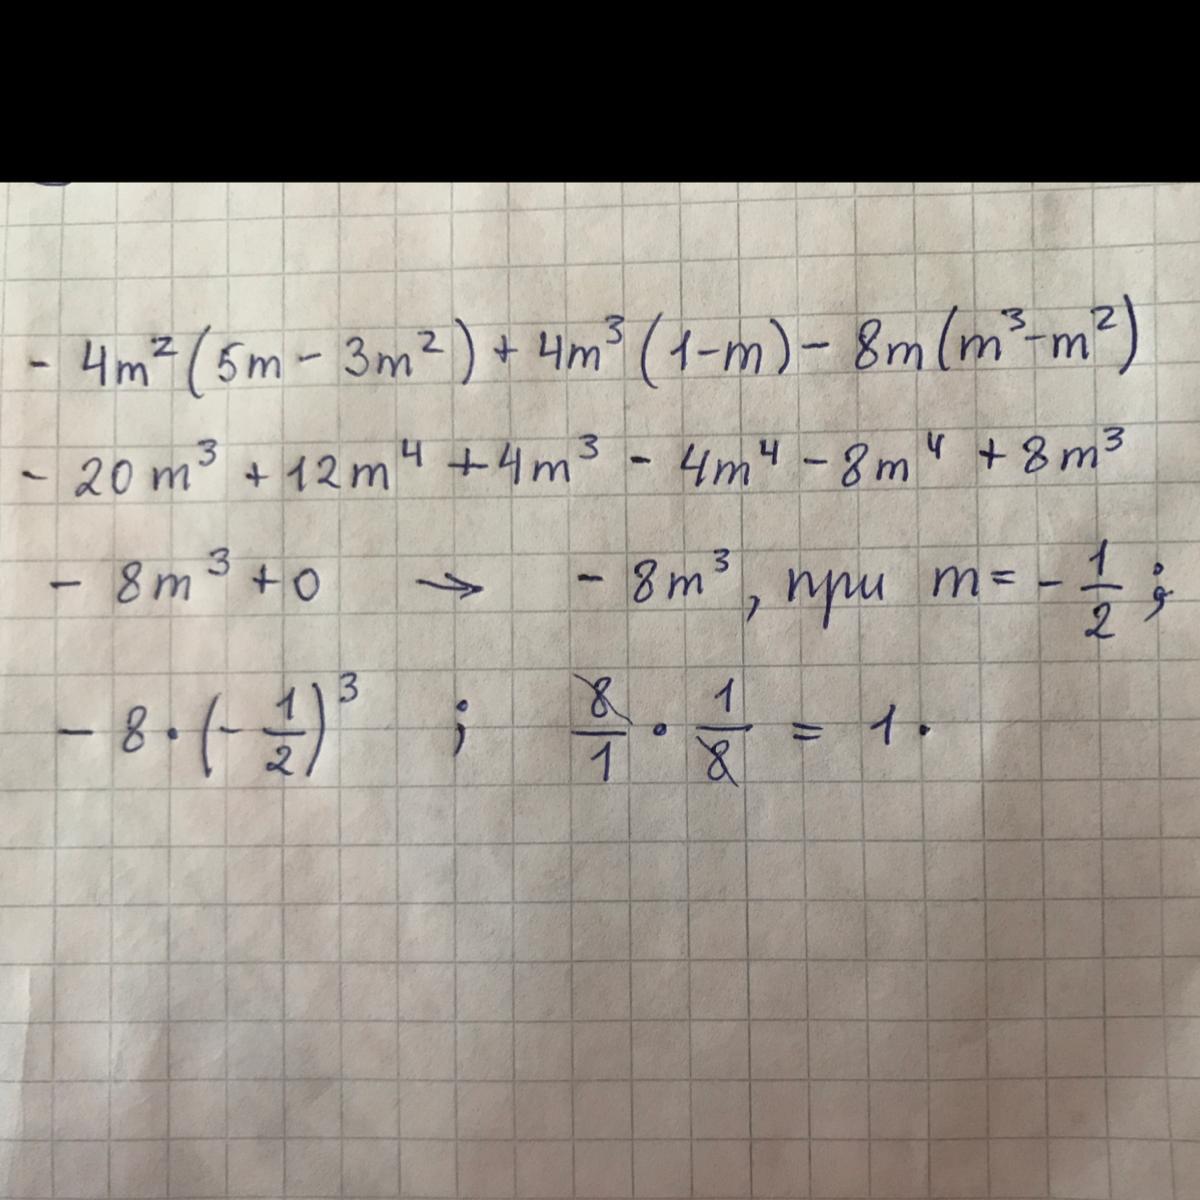 - 4m²(5m - 3m²) + 4m³(1-m) - 8m(m³-m²)
- 20m³ + 12m⁴ + 4m³ - 4m⁴ - 8m⁴ + 8m³
- 8m³ + 0 → - 8m³, при m = - 1/2 ;
- 8 · (- 1/2)³ ; 8/1 · 1/8 = 1 .